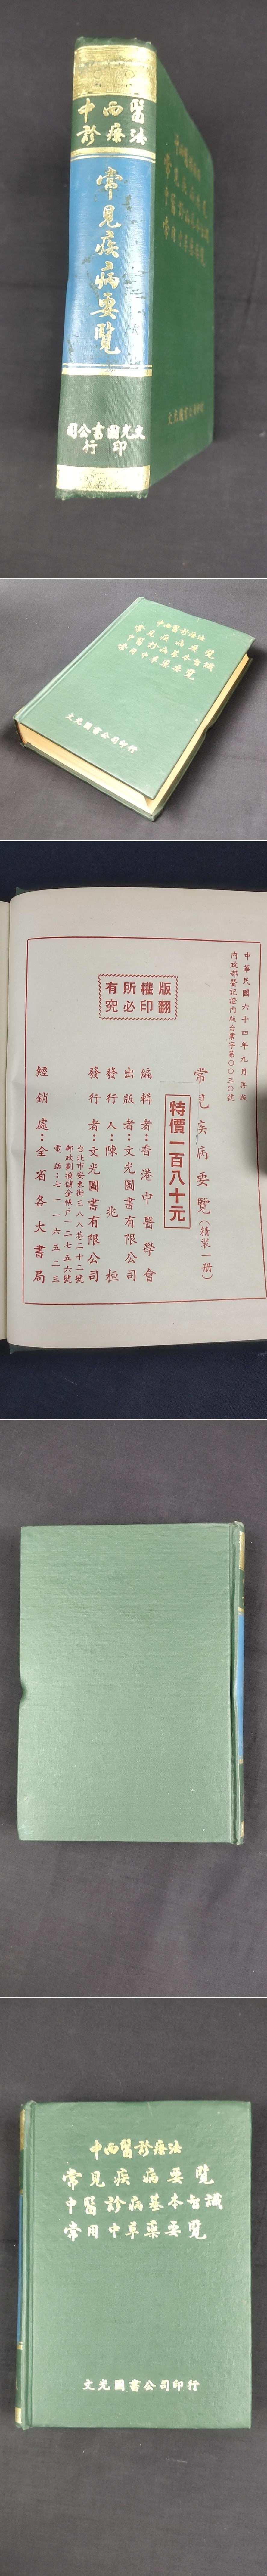 中西醫
診療法
常見疾病要覽
文光圖書公司
印行
中西醫診療法
常見疾病要覽
中醫診病基本知識
常用中草藥要覽
文光圖書公司印行
中西醫診療法
常見疾病要覽
中醫診病基本知識
常用中草藥要覽
文光圖書公司印行
中華民國六十四年九月再版
內政部登記證內版台業字第〇〇三〇號
版權所有
翻印必究
常見疾病要覽(精裝一册)
特價一百八十元
編輯者:香港中醫學會
出版者:文光圖書有限公司
發行人:陳兆桓
發行者:文光圖書有限公司
台北市安東街三八八巷二十二號
郵政劃撥儲金帳戶一二七五六號
電話:七一一六五二三
經銷處:全省各大書局
中西醫診療法
常見疾病要覽
中醫診病基本知識
常用中草藥要覽
文光圖書公司印行